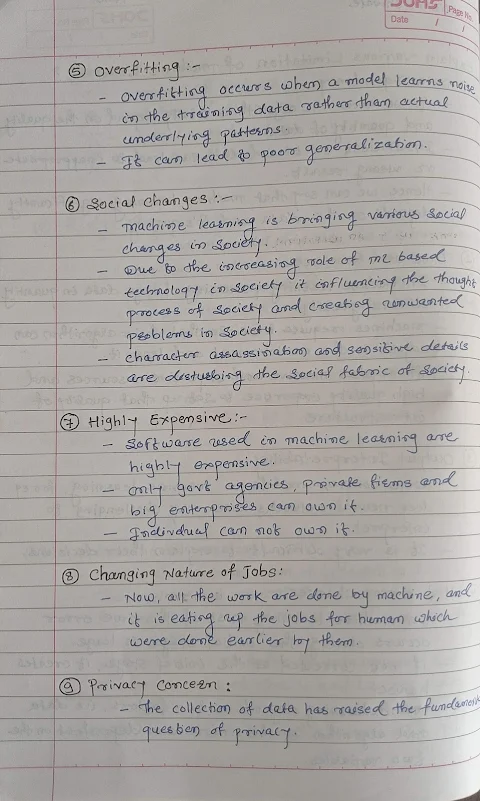 SOHS
Page No.
Date / /
⑤ Overfitting :-
- Overfitting occurs when a model learns noise
in the training data rather than actual
underlying patterns.
- It can lead to poor generalization.
⑥ Social changes :-
- Machine learning is bringing various social
changes in society.
- Due to the increasing role of ML based
technology in society it influencing the thought
process of society and creating unwanted
problems in society.
- character assassination and sensitive details
are disturbing the social fabric of society.
⑦ Highly Expensive :-
- Software used in machine learning are
highly expensive.
- only govt agencies, private firms and
big enterprises can own it.
- Individual can not own it.
⑧ Changing Nature of Jobs:
- Now, all the work are done by machine, and
it is eating up the jobs for human which
were done earlier by them.
⑨ Privacy Concern :
- The collection of data has raised the fundament
question of privacy.